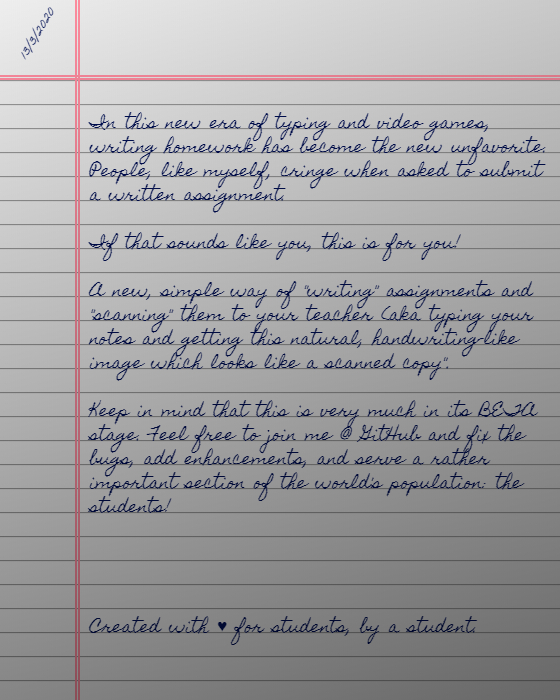 13/3/2020
In this new era of typing and video games,
writing homework has become the new unfavorite.
People, like myself, cringe when asked to submit
a written assignment.
If that sounds like you, this is for you!
A new, simple way of "writing" assignments and
"scanning" them to your teacher (aka typing your
notes and getting this natural, handwriting-like
image which looks like a scanned copy".
Keep in mind that this is very much in its BETA
stage. Feel free to join me @ GitHub and fix the
bugs, add enhancements, and serve a rather
important section of the world's population: the
students!
Created with ♥ for students, by a student.